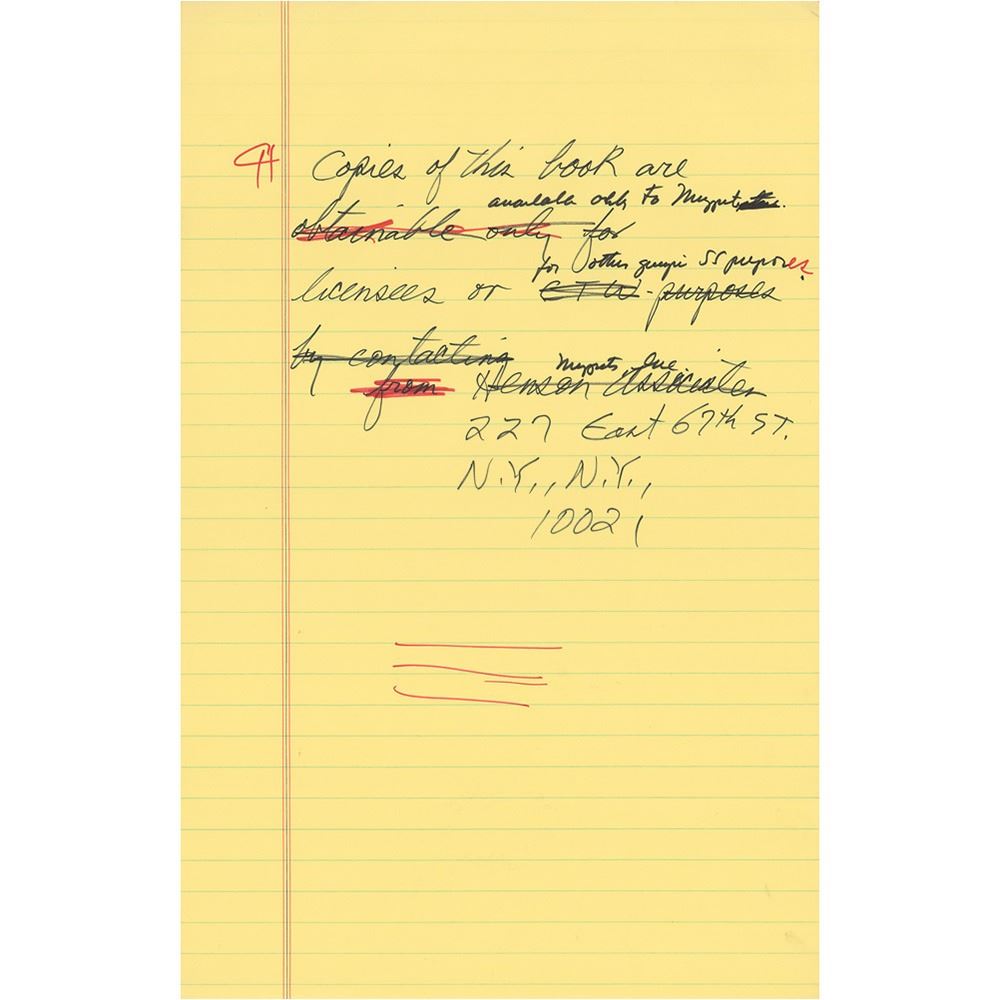 Copies of this book are
available only to Muppet
obtainable only for
for other SS purposes
licensees or CTW purposes
by contacting
Muppets, Inc.
from Henson Associates
227 East 67th ST.
N.Y., N.Y.,
10021